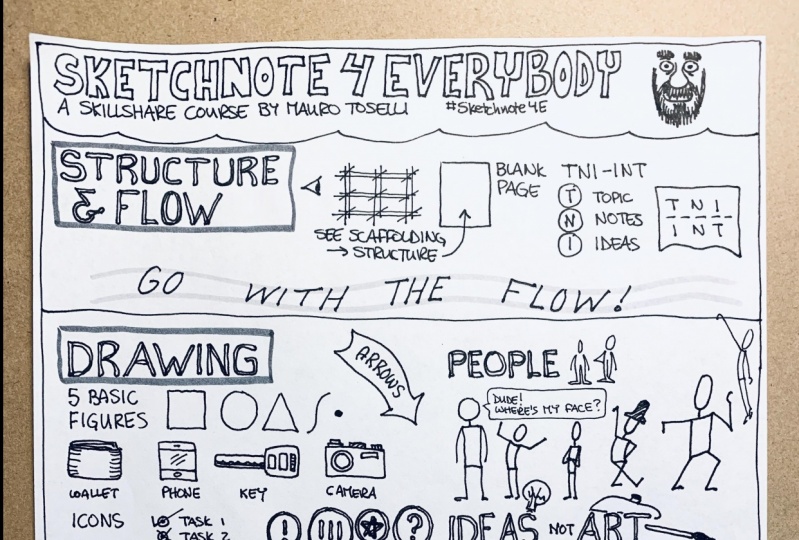 SKETCHNOTE 4 EVERYBODY
A SKILLSHARE COURSE BY MAURO TOSELLI #Sketchnote4E
STRUCTURE
& FLOW
SEE SCAFFOLDING
→ STRUCTURE
BLANK
PAGE
TNI-INT
T TOPIC
N NOTES
I IDEAS
T N I
I N T
GO WITH THE FLOW!
DRAWING
ARROWS
PEOPLE
5 BASIC
FIGURES
DUDE!
WHERE'S MY FACE?
WALLET PHONE KEY CAMERA
ICONS
TASK 1
TASK 2
! ?
IDEAS NOT ART